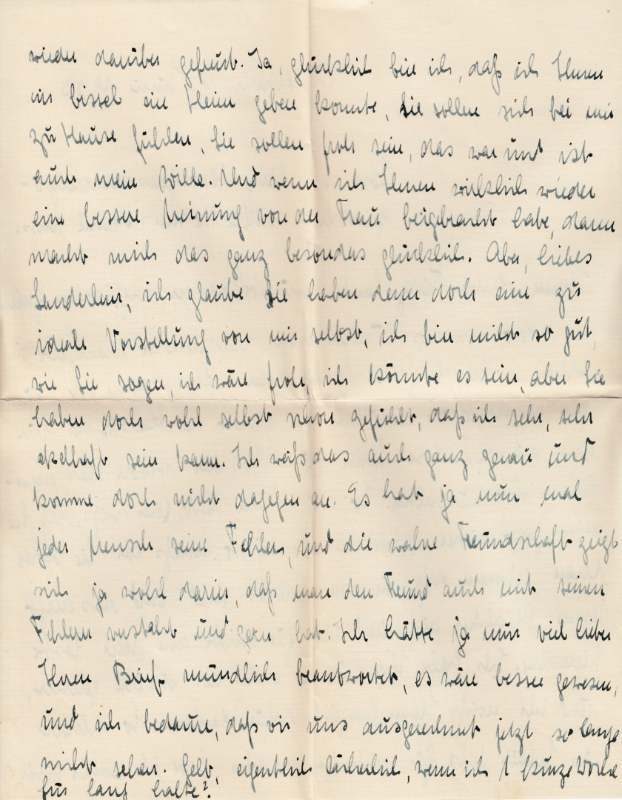 wieder darüber gefreut. Ja, glücklich bin ich, daß ich Ihnen
ein bissel ein Heim geben konnte, Sie sollen sich bei mir
zu Hause fühlen, Sie sollen froh sein, das war und ist
auch mein Wille. Und wenn ich Ihnen wirklich wieder
eine bessere Meinung von der Frau beigebracht habe, dann
macht mich das ganz besonders glücklich. Aber, liebes
ich glaube Sie haben denn doch eine zu
ideale Vorstellung von mir selbst, ich bin nicht so gut,
wie Sie sagen, ich wäre froh, ich könnte es sein, aber Sie
haben doch wohl selbst schon gefühlt, daß ich sehr, sehr
ekelhaft sein kann. Ich weiß das auch ganz genau und
komme doch nicht dagegen an. Es hat ja nun mal
jeder Mensch seine Fehler, und die wahre Freundschaft zeigt
sich ja wohl darin, daß man den Freund auch mit seinen
Fehlern versteht und gern hat. Ich hätte ja nun viel lieber
Ihren Brief mündlich beantwortet, es wäre besser gewesen,
und ich bedaure, daß wir uns ausgerechnet jetzt so lange
nicht sehen. Gelt, eigentlich lächerlich, wenn ich 1 kurze Woche
für lang halte?